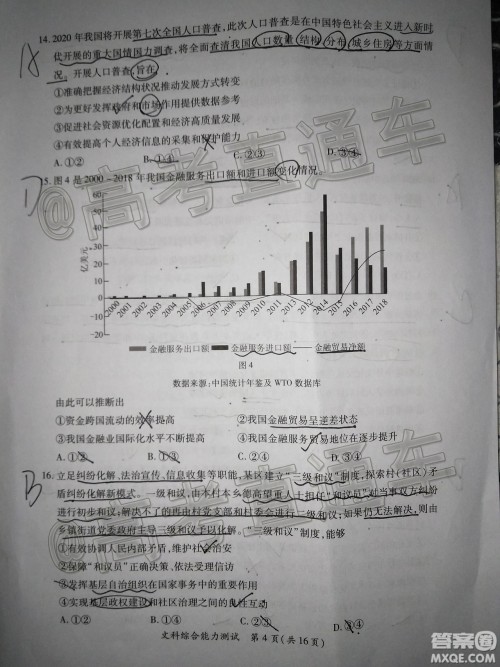 14. 2020年我国将开展第七次全国人口普查,此次人口普查是在中国特色社会主义进入新时
代开展的重大国情国力调查,将全面查清我国人口数量、结构、分布、城乡住房等方面情
况。开展人口普查,旨在
A
①准确把握经济结构状况推动发展方式转变
②为更好发挥政府和市场作用提供数据参考
③促进社会资源优化配置和经济高质量发展
④有效提高个人经济信息的采集和保护能力
A. ①② B. ①④ C. ②③ D. ③④
D
15. 图4是2000-2018年我国金融服务出口额和进口额变化情况。
60
50
40
30
20
10
0
-10
-20
亿美元
2000 2001 2002 2003 2004 2005 2006 2007 2008 2009 2010 2011 2012 2013 2014 2015 2016 2017 2018
金融服务出口额 金融服务进口额 金融贸易净额
图4
数据来源:中国统计年鉴及WTO数据库
由此可以推断出
①资金跨国流动的效率提高 ②我国金融贸易呈逆差状态
③我国金融业国际化水平不断提高 ④我国金融服务贸易地位在逐步提升
A. ①② B. ①③ C. ②④ D. ③④
B
16. 立足纠纷化解、法治宣传、信息收集等职能,某区建立“三级和议”制度,探索村(社区)矛
盾纠纷化解新模式。一级和议,由本村本乡德高望重人士担任“和议员”对当事双方纠纷
进行初步和议;解决不了的再由村党支部和村委会进行二级和议;如果仍无法解决,则由
乡镇街道党委政府主导三级和议予以化解。“三级和议”制度,能够
①有效协调人民内部矛盾,维护社会治安
②保障“和议员”正确决策、依法受理信访
③发挥基层自治组织在国家事务中的重要作用
④实现基层政权建设和社区治理之间的良性互动
A. ①② B. ①④ C. ②③ D. ③④
文科综合能力测试 第4页(共16页)
@高考直通车
@高考直通车
答案圈
MXQE.COM